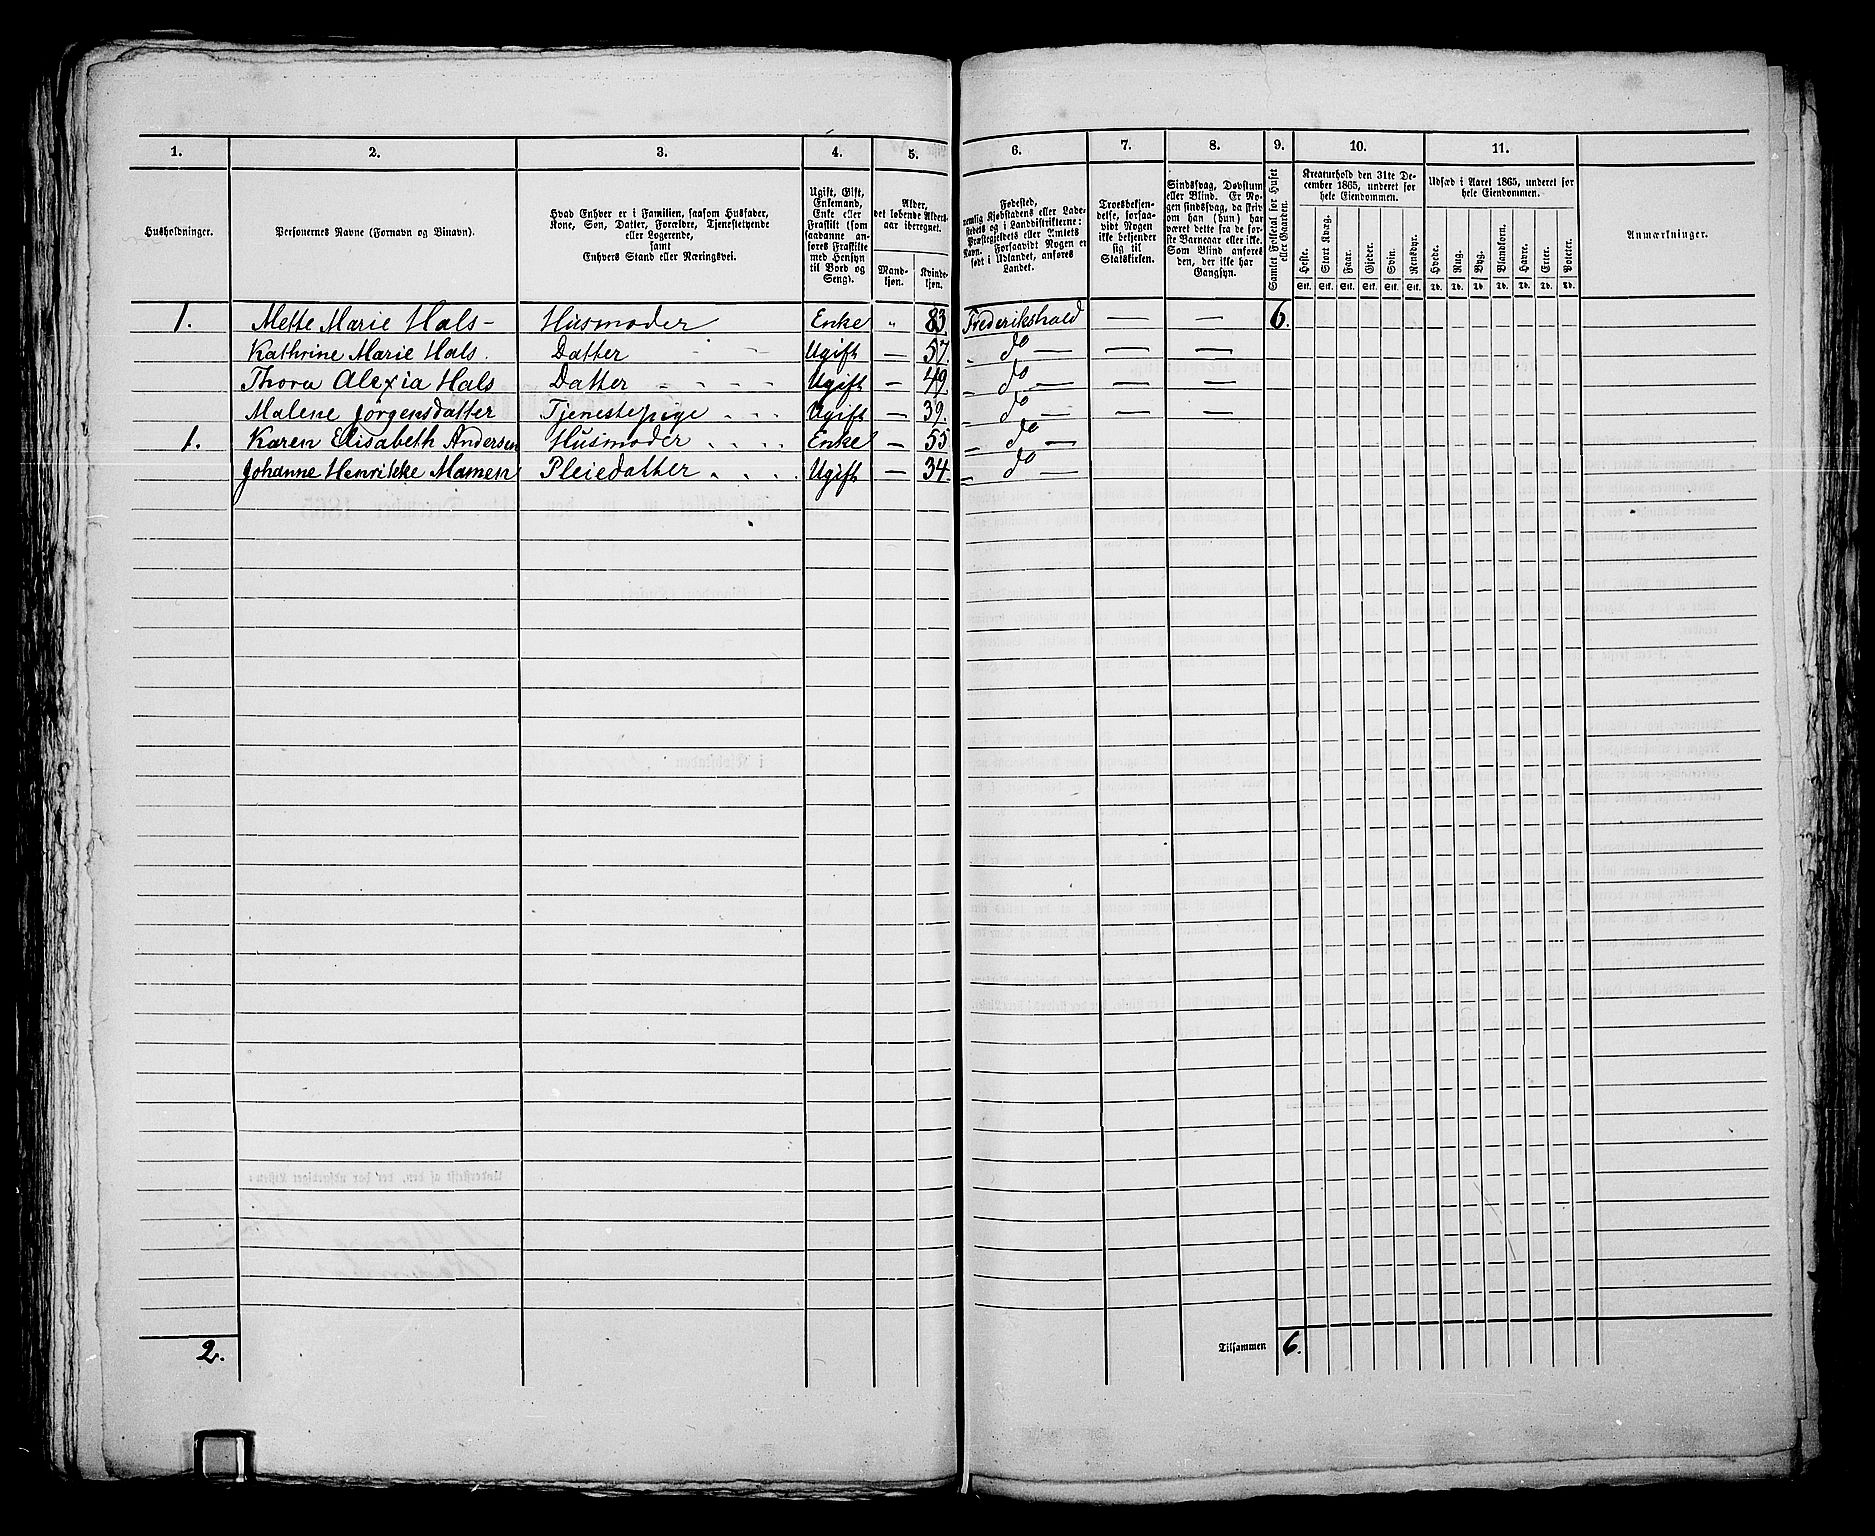 1. 2. 3. 4. 5. 6. 7. 8. 9. 10. 11.
Husholdninger.
Personernes Navne (Fornavn og Binavn).
Hvad Enhver er i Familien, saasom Husfader,
Kone, Søn, Datter, Forældre, Tjenestetyende
eller Logerende,
samt
Enhvers Stand eller Næringsvei.
Ugift, Gift,
Enkemand,
Enke eller
Fraskilt (som
saadanne an-
føres Fraskilte
med Hensyn
til Bord og
Seng).
Alder,
det løbende Alders-
aar iberegnet.
Mand-
kjøn.
Kvinde-
kjøn.
Fødested,
nemlig Kjøbstadens eller Lade-
stedets og i Landdistrikterne:
Præstegjeldets eller Amtets
Navn. Forsaavidt Nogen er
født i Udlandet, anføres
Landet.
Troesbekjen-
delse, forsaa-
vidt Nogen
ikke bekjender
sig til
Statskirken.
Sindssvag, Døvstum
eller Blind. Er No-
gen sindssvag, da hvor-
om han (hun) har
været dette fra de for-
ste Barneaar eller ikke.
Som Blind anføres
den, der ikke har
Gangsyn.
Samlet Folketal for Huset
eller Gaarden.
Kreaturhold den 31te De-
cember 1865, underet for
hele Eiendommen.
Heste. Stort Kvæg. Faar. Gjeder. Svin. Rensdyr.
Stk. Stk. Stk. Stk. Stk. Stk.
Udsæd i Aaret 1865, underet for
hele Eiendommen.
Hvede. Rug. Byg. Blandkorn. Havre. Erter. Poteter.
Td. Td. Td. Td. Td. Td. Td.
Anmærkninger.
1. Mette Marie Hals - Husmoder Enke " 83 Frederikshald — — 6.
Kathrine Marie Hals. Datter Ugift — 57. " do — — —
Thora Alexia Hals Datter Ugift — 49. " do — — —
Malene Jörgensdatter Tjenestepige Ugift — 39. " do — — —
1. Karen Elisabeth Andersen Husmoder Enke — 55 " do —
Johanne Henrikke Mamen Pleiedatter Ugift — 34. " do —
2. Tilsammen 6.